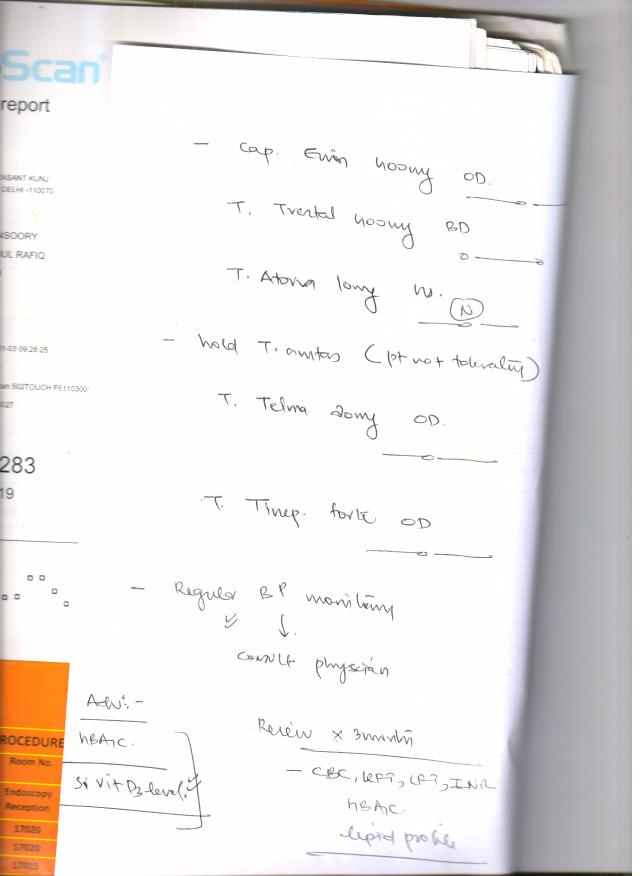 Scan®
report
ASANT KUNJ
DELHI -110070
NSOORY
UL RAFIQ
- Cap. Evion 400mg OD.
T. Trental 400mg BD
T. Atorva 10mg
N
- hold T. amtas (pt not tolerating)
01-03 09:28:25
an 502TOUCH F6110300
0027
T. Telma 20mg OD.
283
19
T. forte OD
- Regular BP monitoring
↓
consult physician
Adv:-
HBA1C.
Sr Vit D3 level.
Review x 3 months
- CBC, KFT, LFT, INR
HBA1C
lipid profile
ROCEDURE
Room No.
Endoscopy
Reception
17020
17020
17015